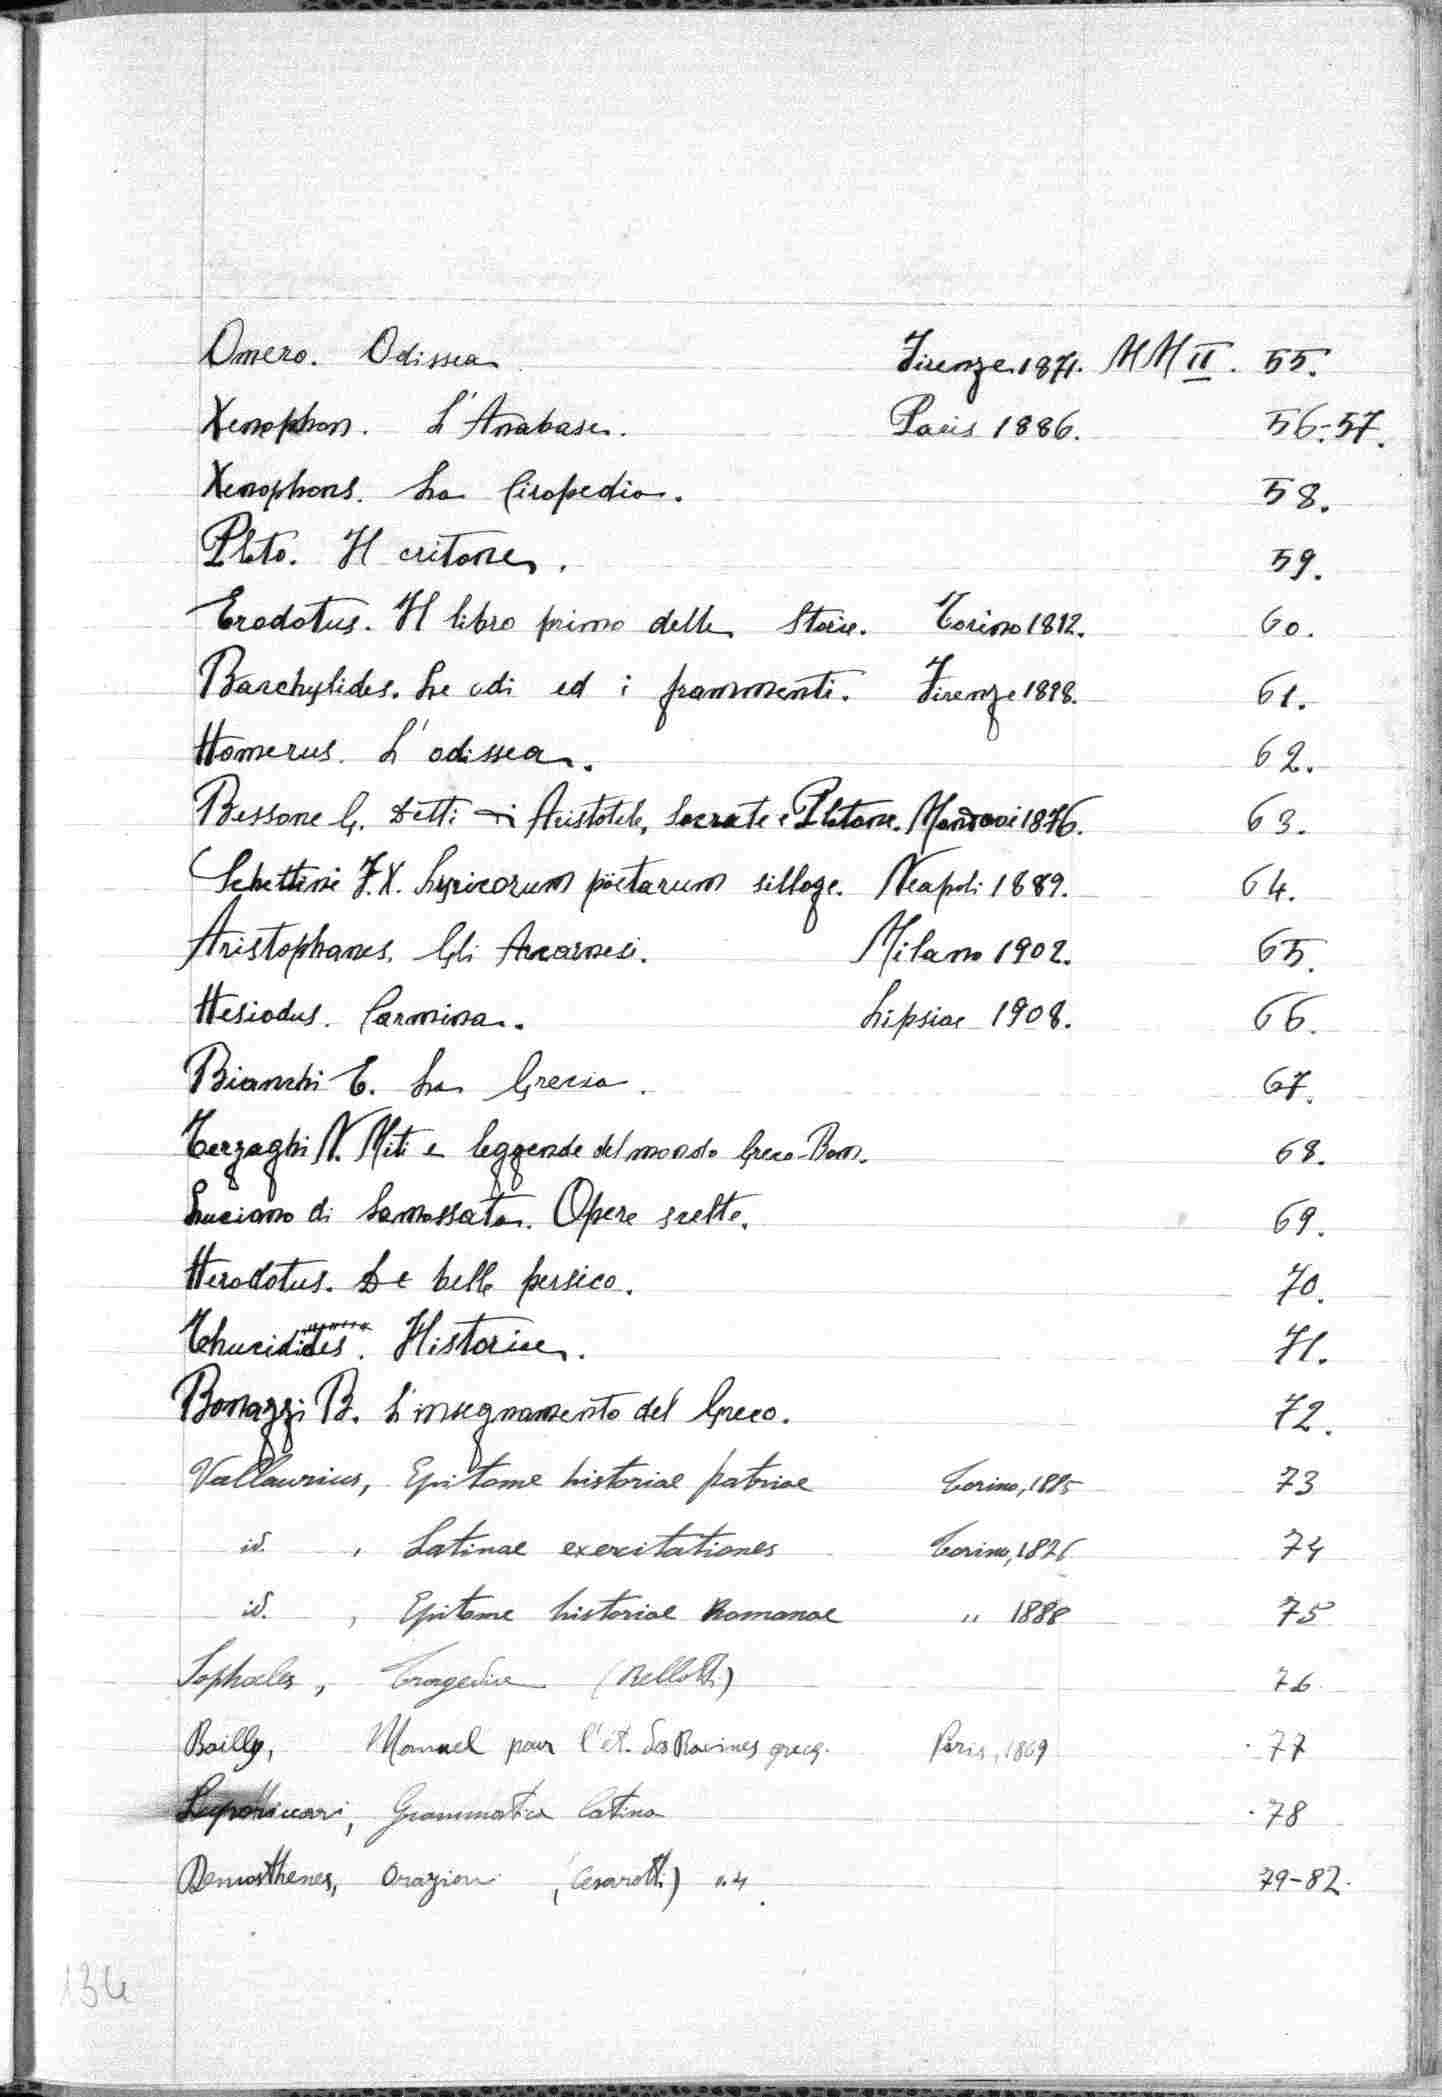 Omero. Odissea Firenze 1871. MM II. 55.
Xenophon. L'Anabase. Paris 1886. 56-57.
Xenophons. La Ciropedia. 58.
Plato. Il critone. 59.
Erodotus. Il libro primo delle Storie. Torino 1812. 60.
Barchylides. Le odi ed i frammenti. Firenze 1898. 61.
Homerus. L'odissea. 62.
Bessone G. Detti di Aristotele, Socrate e Platone. Mondovi 1876. 63.
Schettini F.X. Lyricorum pöetarum silloge. Neapoli 1889. 64.
Aristophanes. Gli Arcarnesi. Milano 1902. 65.
Hesiodus. Carmina. Lipsiae 1908. 66.
Bianchi E. La Grecia. 67.
Terzaghi N. Miti e leggende del mondo Greco-Rom. 68.
Luciano di Samossata. Opere scelte. 69.
Herodotus. De bello persico. 70.
Thucidides. Historiae. 71.
Bonazzi B. L'insegnamento del Greco. 72.
Vallaurius, Epitome historiae patriae Torino, 1885 73
id. , Latinae exercitationes Torino, 1826 74
id. , Epitome historiae Romanae " 1888 75
Sophocles, Tragedie (Bellotti) 76.
Bailly, Manuel pour l'ét. des Racines grecq. Paris, 1869 77
Grammatica latina 78
Demosthenes, Orazioni (Cesarotti) 79-82.
134